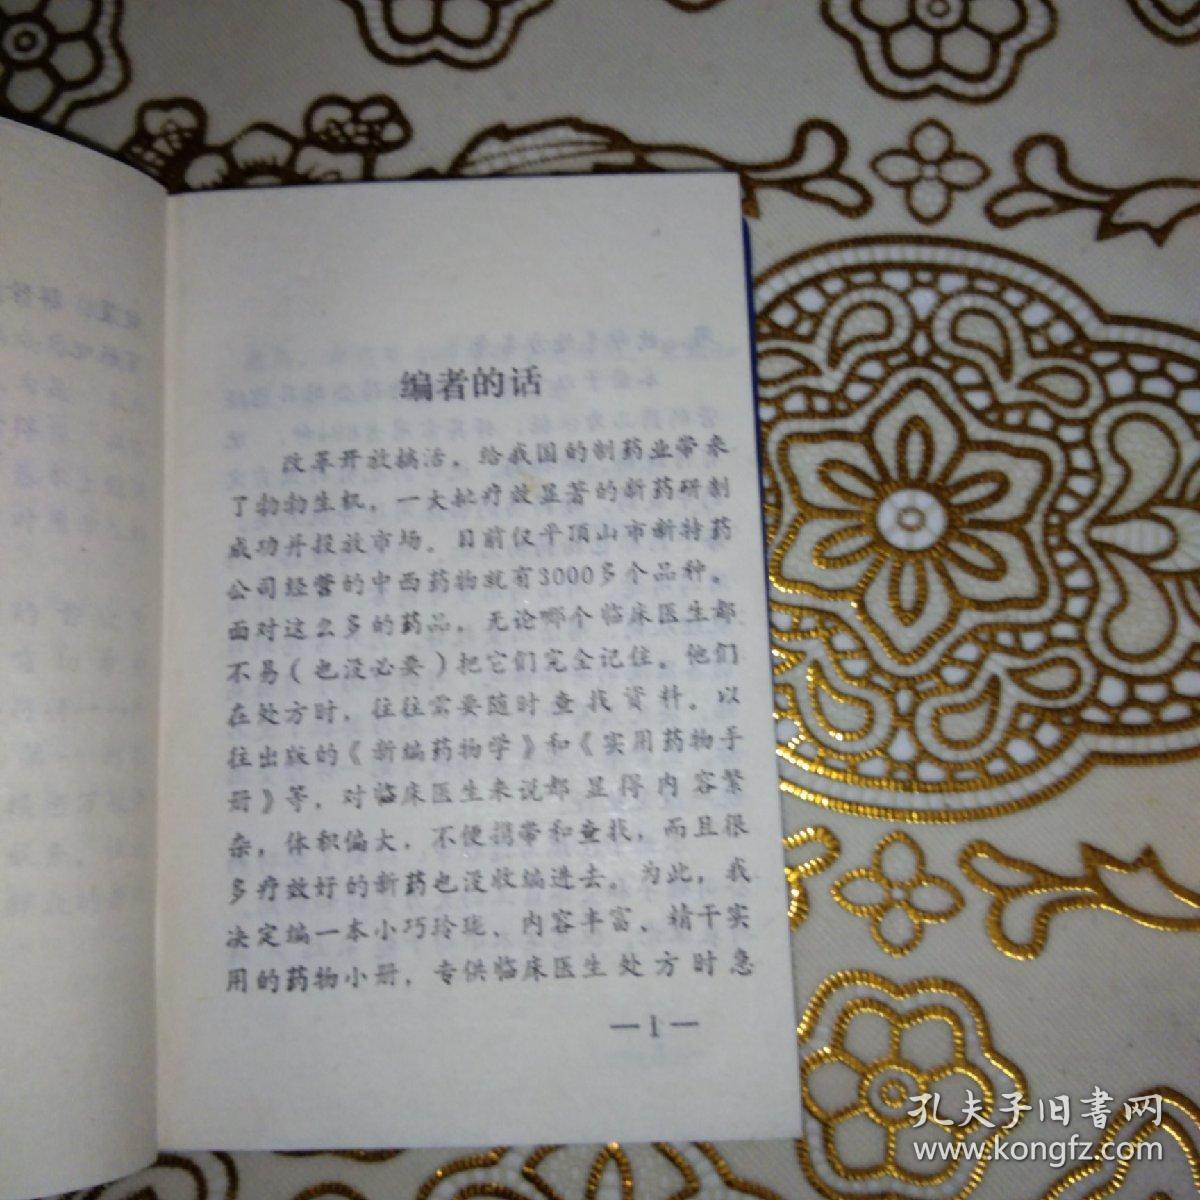 编者的话
改革开放搞活，给我国的制药业带来
了物物生机，一大批疗效显著的新药研制
成功并投放市场。目前仅平顶山市新特药
公司经营的中西药物就有3000多个品种。
面对这么多的药品，无论哪个临床医生都
不易（也没必要）把它们完全记住。他们
在处方时，往往需要随时查找资料。以
往出版的《新编药物学》和《实用药物手
册》等，对临床医生来说都显得内容繁
杂，体积偏大，不便携带和查找，而且很
多疗效好的新药也没收编进去。为此，我
决定编一本小巧玲珑、内容丰富、精干实
用的药物小册，专供临床医生处方时急
—1—
孔夫子旧書网
www.kongfz.com